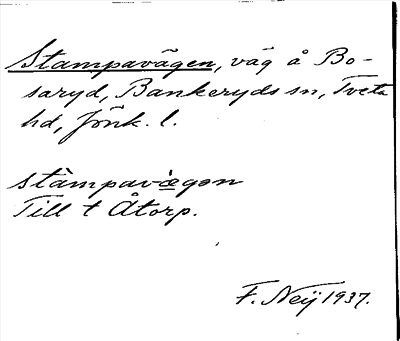 Stampavägen, väg å Bo-
saryd, Bankeryds sn, Tveta
hd, Jönk. l.
stàmpavæ̀gən
Till t Åtorp.
F. Neÿ 1937.